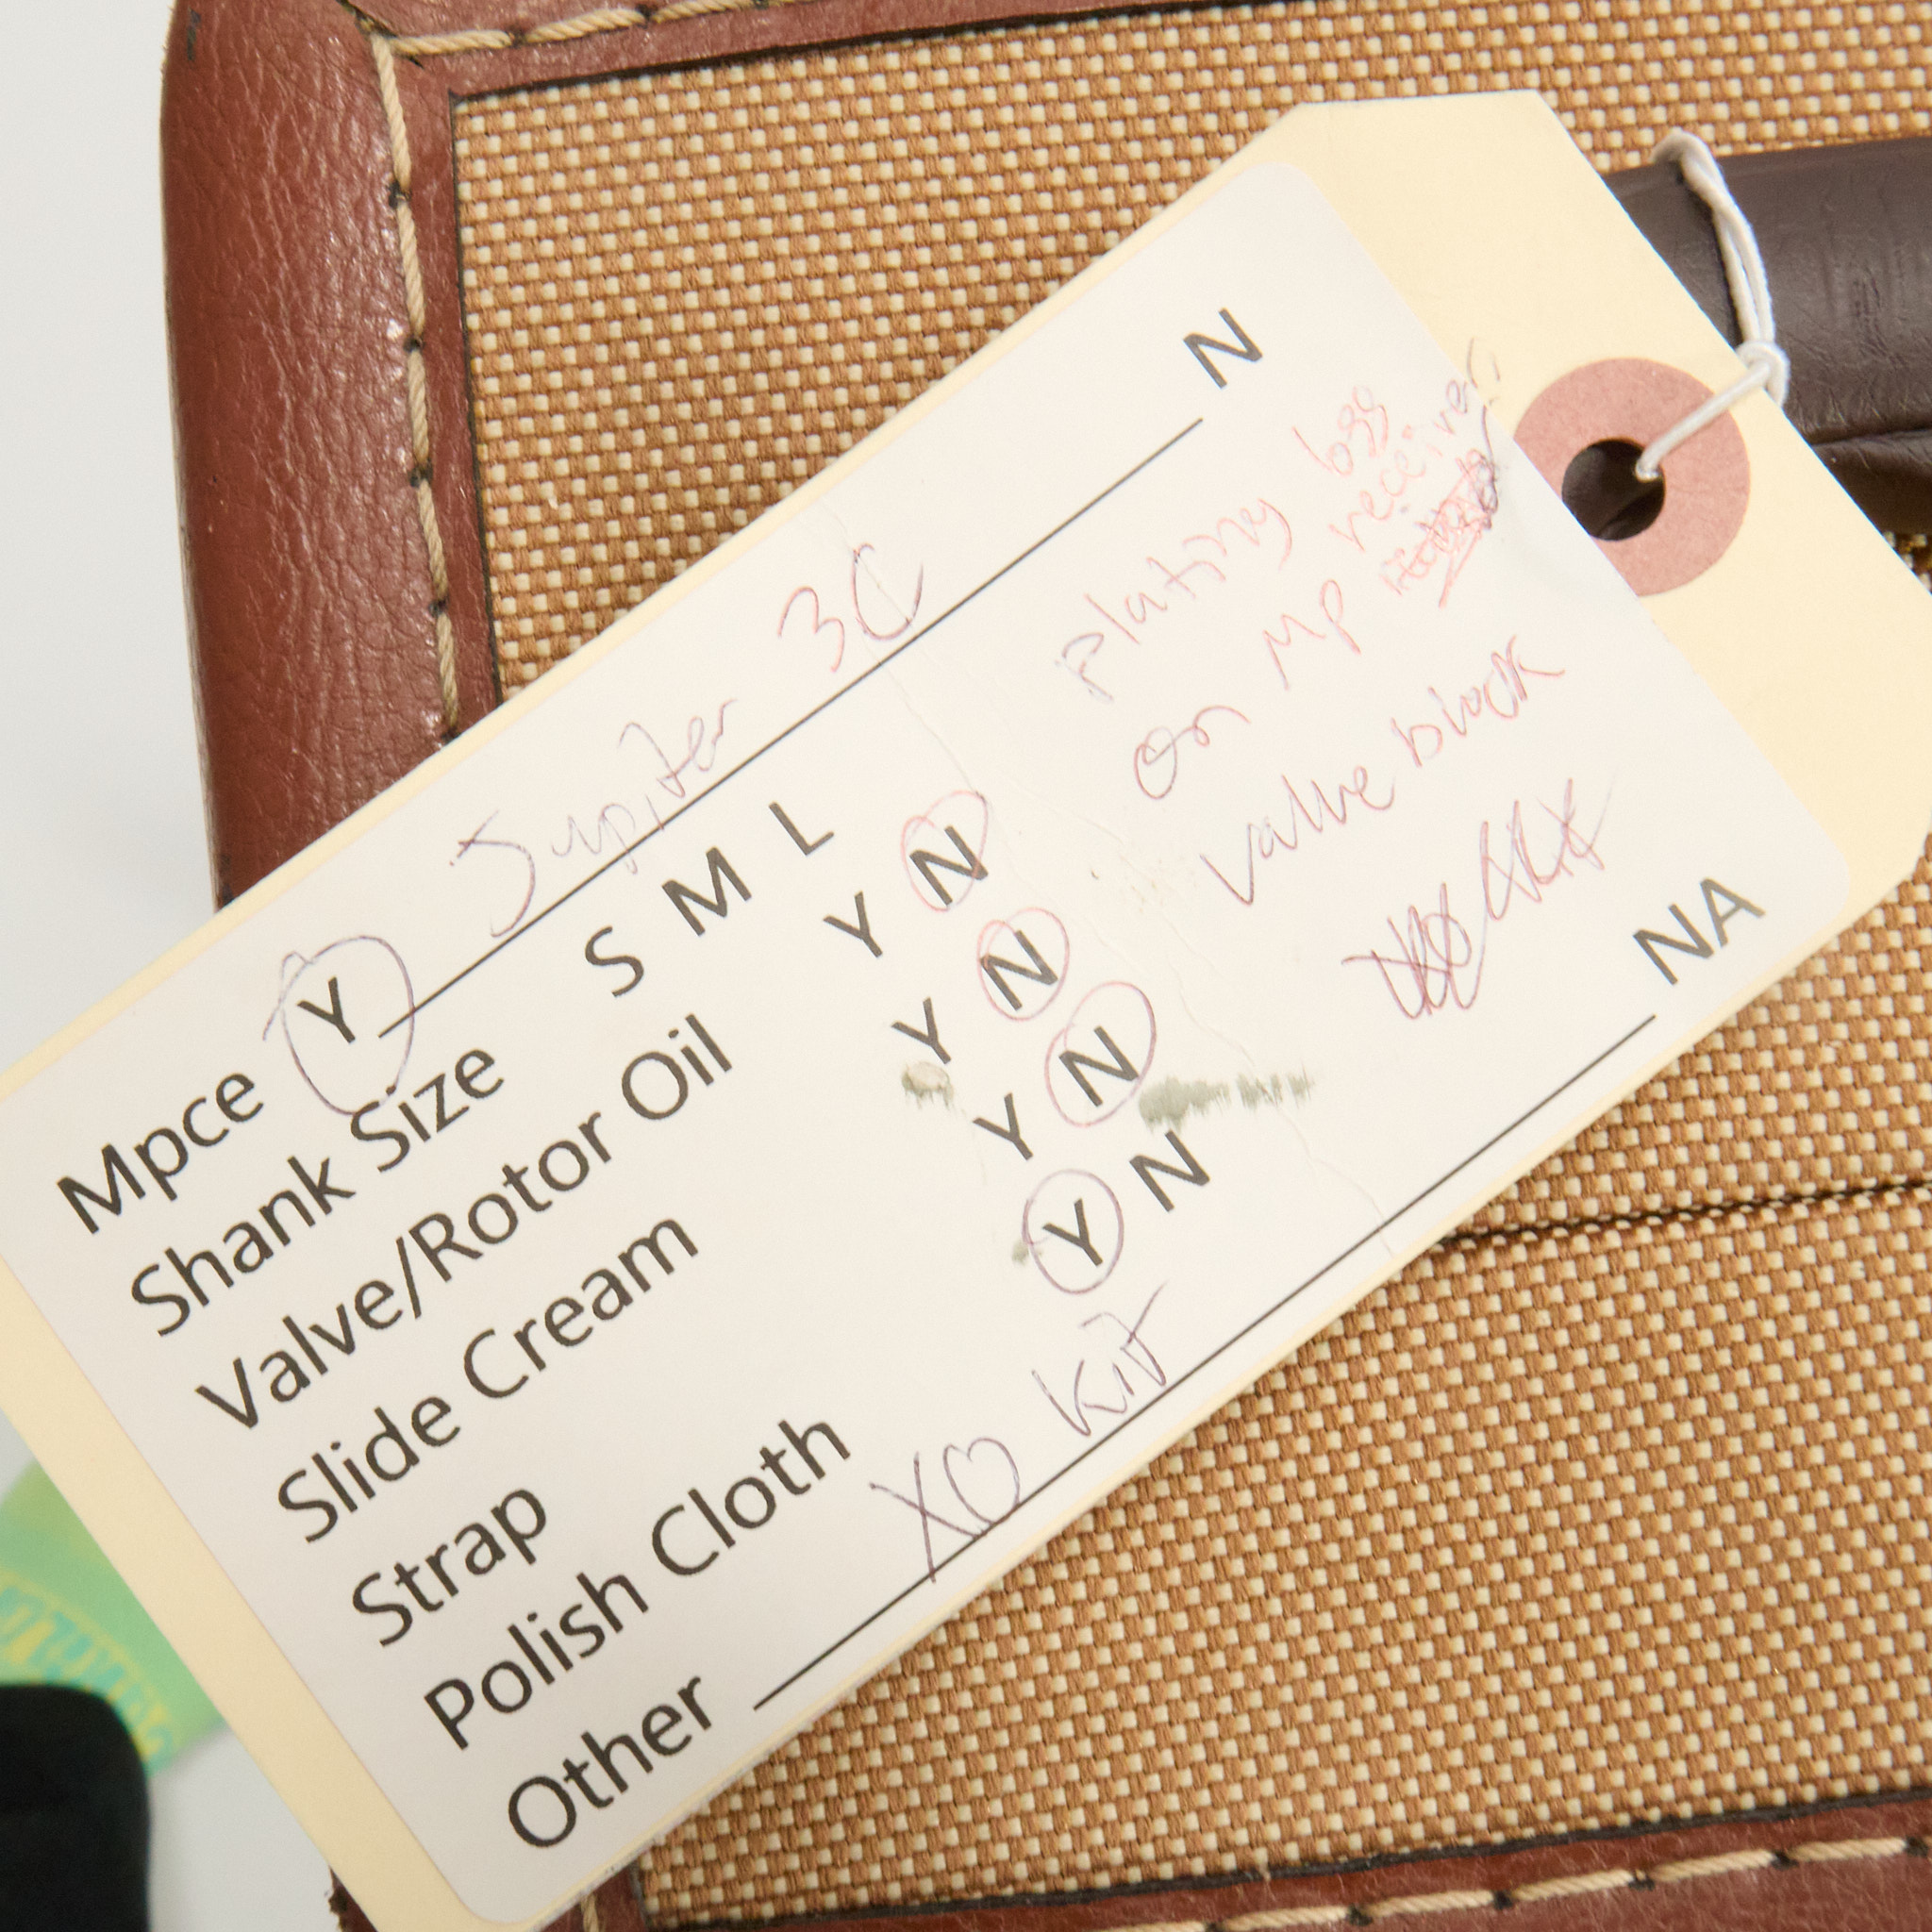 Mpce Y Jupiter 3C N
Shank Size S M L
Valve/Rotor Oil Y N
Slide Cream Y N
Strap Y N
Polish Cloth Y N
Other XO Kit NA
plating
on MP receiver
valve block